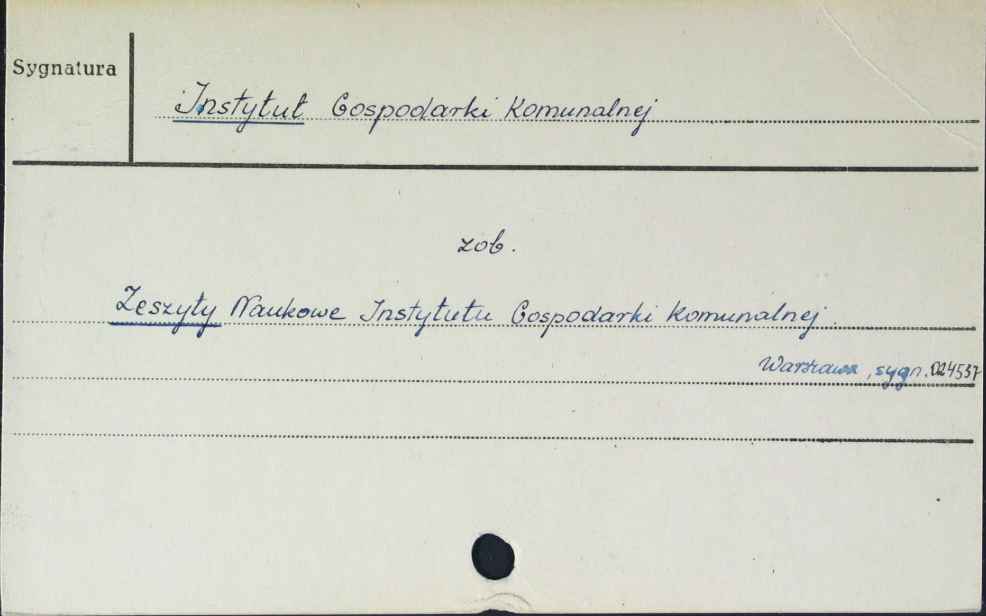 Sygnatura
Instytut Gospodarki Komunalnej
zob.
Zeszyty Naukowe Instytutu Gospodarki Komunalnej
Warszawa, sygn. 024537